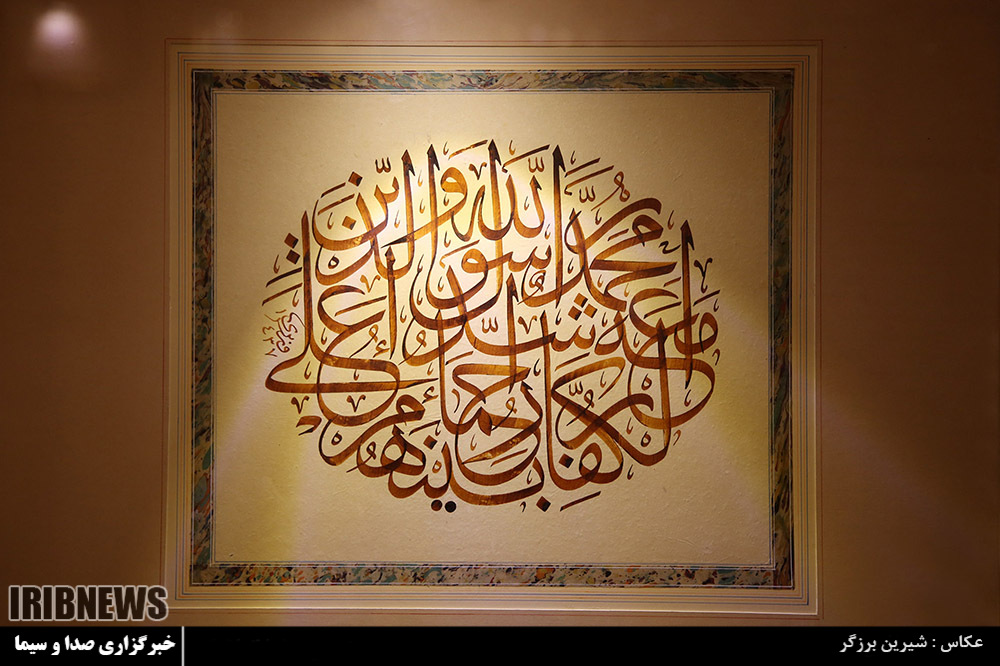 محمد رسول الله والذین معه أشداء علی الکفار رحماء بینهم
IRIBNEWS
خبرگزاری صدا و سیما
عکاس : شیرین برزگر